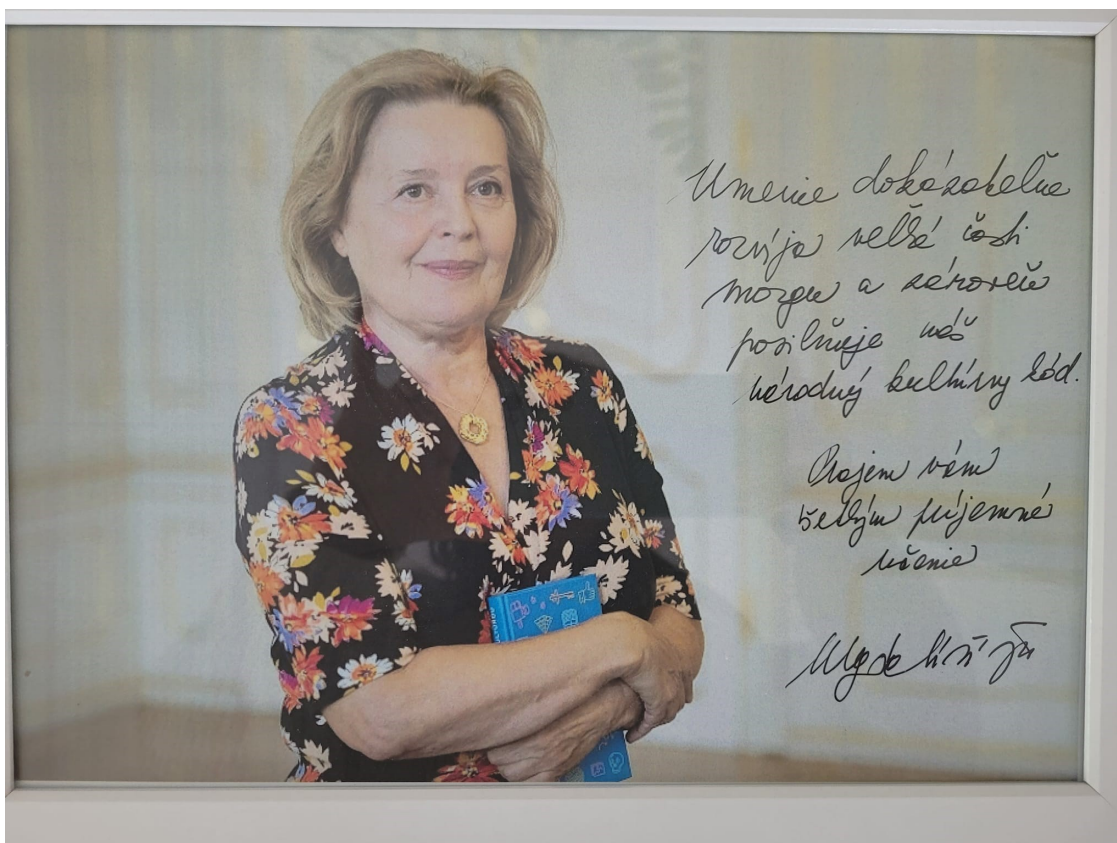 Umenie dokázateľne
rozvíja veľké časti
mozgu a zároveň
posilňuje náš
národný kultúrny kód.
Prajem vám
všetkým príjemné
učenie